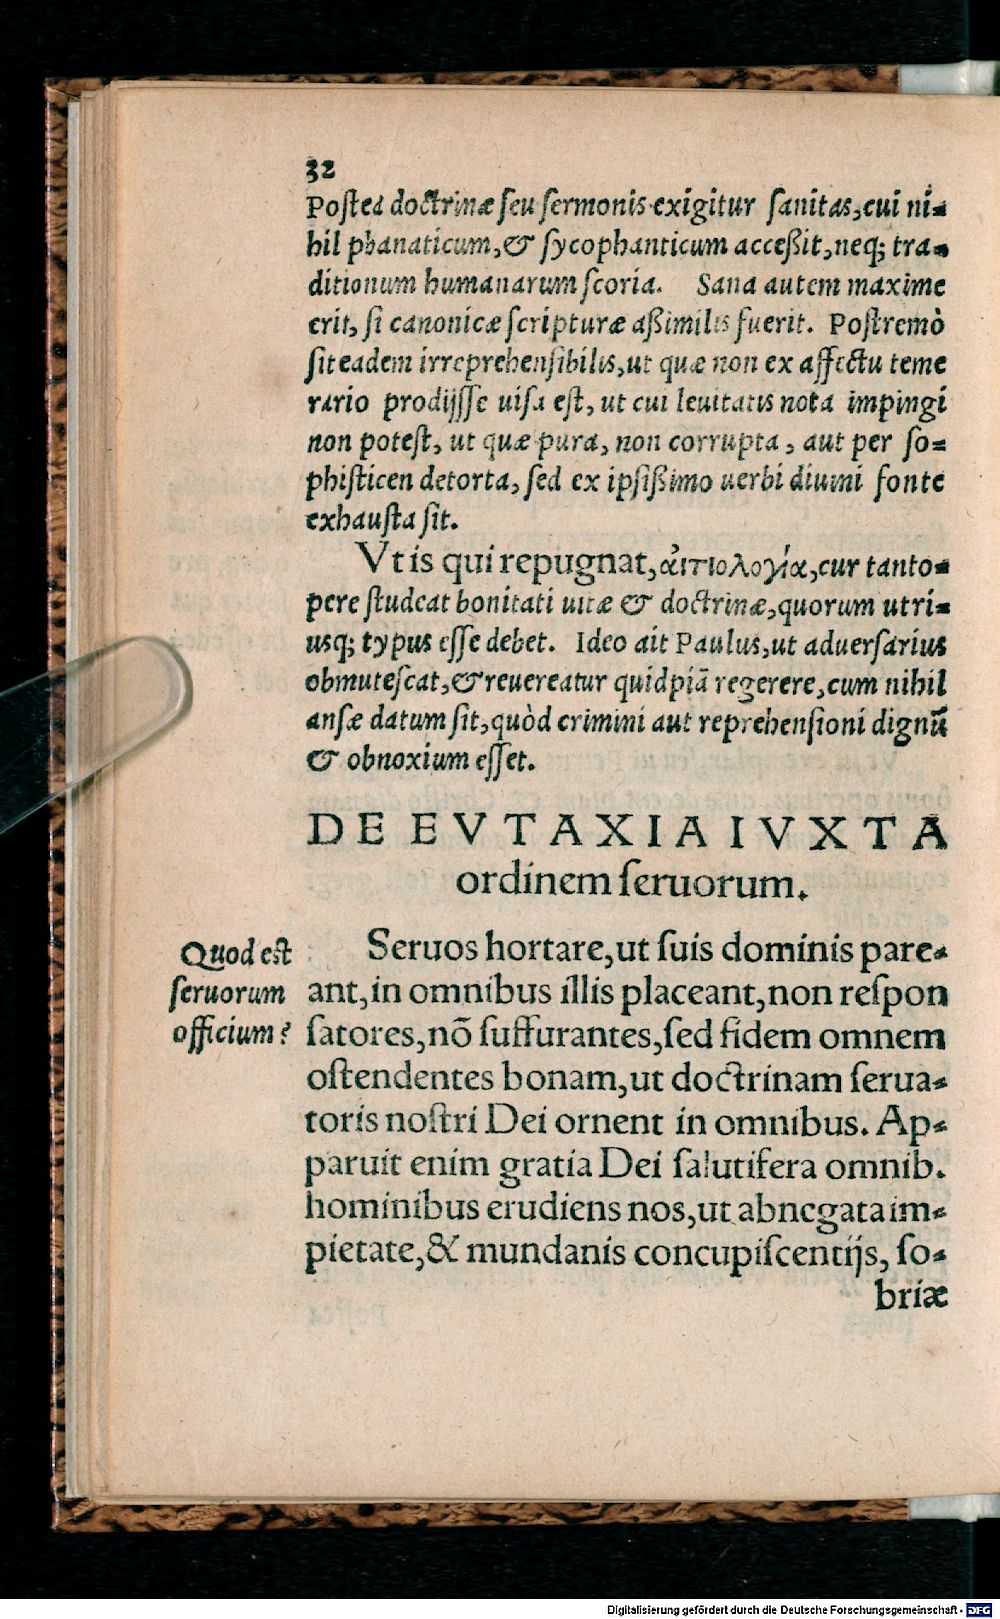 32
Postea doctrinæ seu sermonis exigitur sanitas, cui ni-
hil phanaticum, & sycophanticum acceßit, neq; tra-
ditionum humanarum scoria. Sana autem maxime
erit, si canonicæ scripturæ aßimilis fuerit. Postremò
sit eadem irreprehensibilis, ut quæ non ex affectu teme
rario prodijsse uisa est, ut cui leuitatis nota impingi
non potest, ut quæ pura, non corrupta, aut per so-
phisticen detorta, sed ex ipsißimo uerbi diuini fonte
exhausta sit.
Vt is qui repugnat, αἰτιολογία, cur tanto-
pere studeat bonitati uitæ & doctrinæ, quorum utri-
usq; typus esse debet. Ideo ait Paulus, ut aduersarius
obmutescat, & reuereatur quidpiā regerere, cum nihil
ansæ datum sit, quòd crimini aut reprehensioni dignū
& obnoxium esset.
DE EVTAXIA IVXTA
ordinem seruorum.
Quod est
seruorum
officium?
Seruos hortare, ut suis dominis pare-
ant, in omnibus illis placeant, non respon
satores, nō suffurantes, sed fidem omnem
ostendentes bonam, ut doctrinam serua-
toris nostri Dei ornent in omnibus. Ap-
paruit enim gratia Dei salutifera omnib.
hominibus erudiens nos, ut abnegata im-
pietate, & mundanis concupiscentijs, so-
briæ
Digitalisierung gefördert durch die Deutsche Forschungsgemeinschaft - DFG